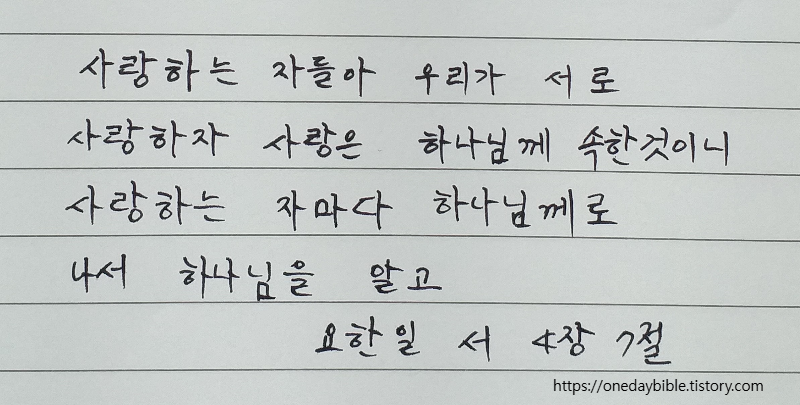 사랑하는 자들아 우리가 서로
사랑하자 사랑은 하나님께 속한것이니
사랑하는 자마다 하나님께로
나서 하나님을 알고
요한일 서 4장 7절
https://onedaybible.tistory.com